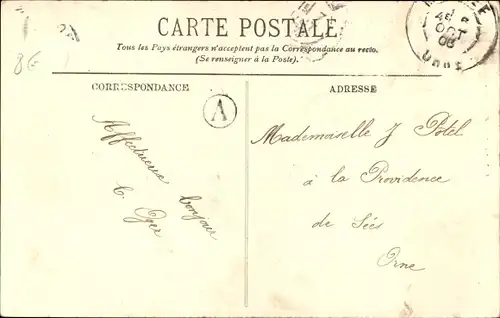 CARTE POSTALE
Tous les Pays étrangers n'acceptent pas la Correspondance au recto.
(Se renseigner à la Poste).
CORRESPONDANCE
ADRESSE
A
Affectueux bonjour
Mademoiselle J Potel
à la Providence
de Sées
Orne
OCT
06
ORNE
8€